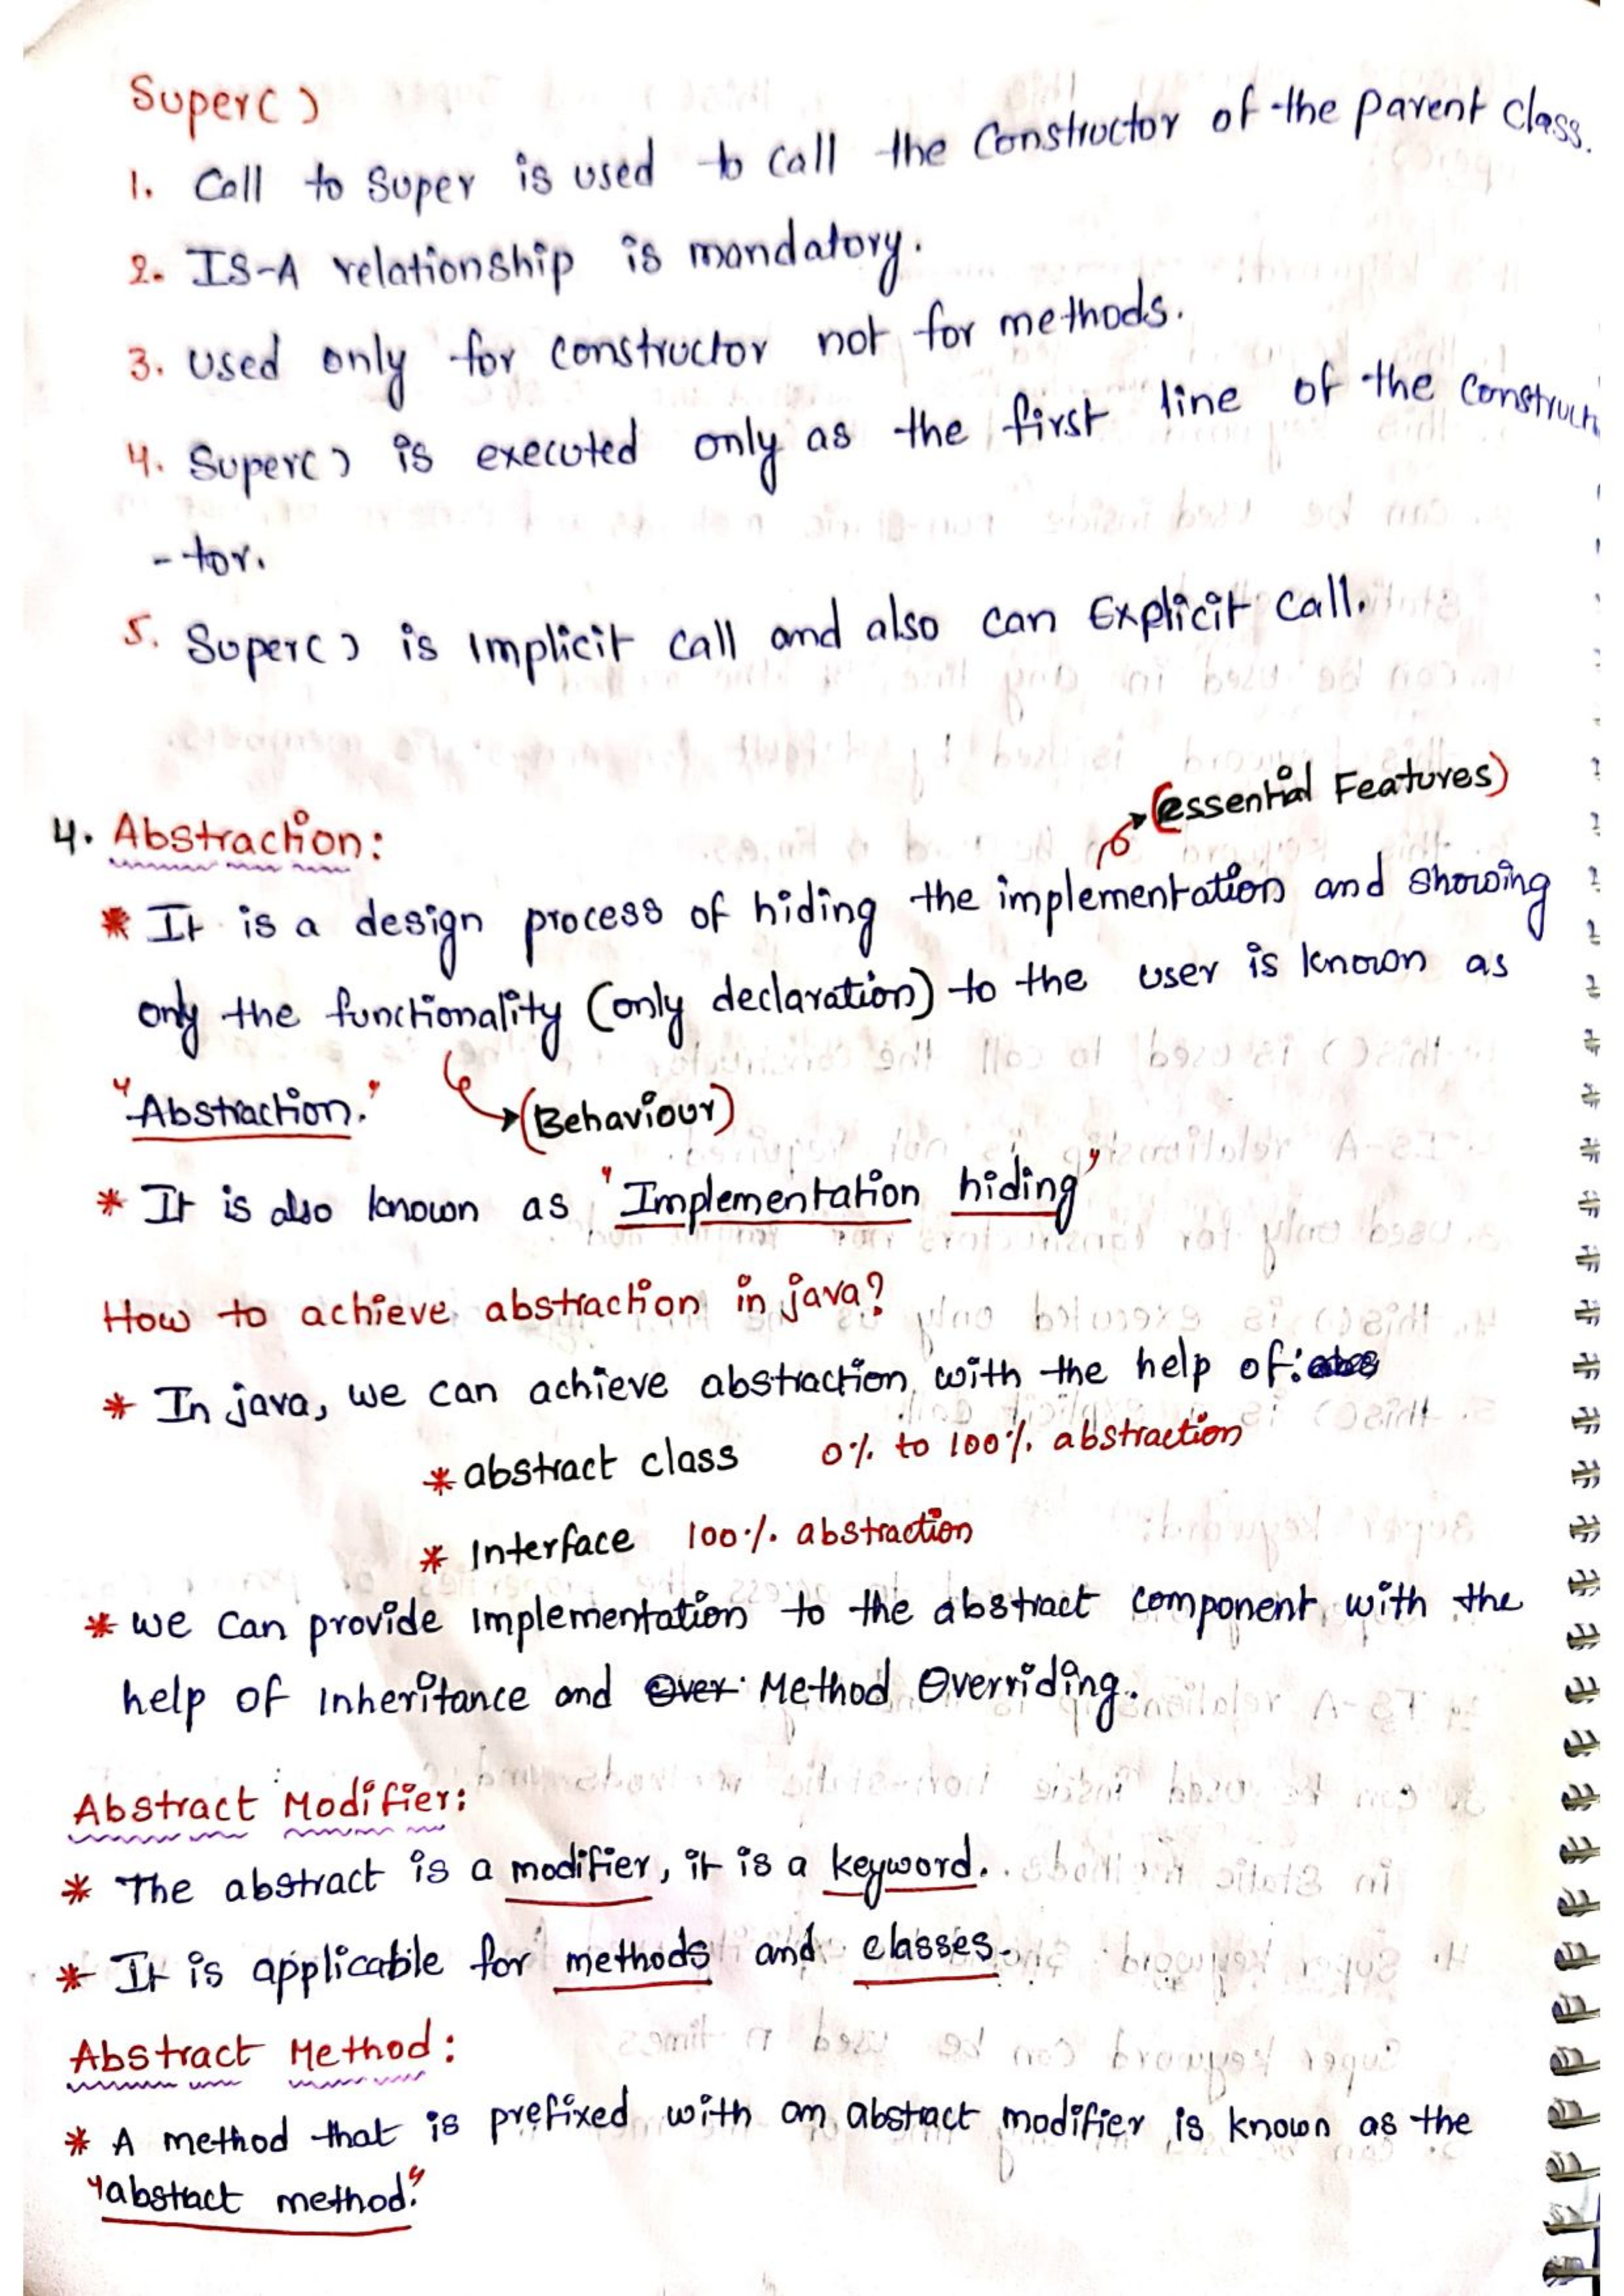 Super( )
1. Call to Super is used to call the Constructor of the parent class.
2. IS-A relationship is mandatory.
3. used only for constructor not for methods.
4. Super( ) is executed only as the first line of the Construct
- tor.
5. Super( ) is Implicit call and also can Explicit call.
(essential Features)
4. Abstraction:
* It is a design process of hiding the implementation and showing
only the functionality (only declaration) to the user is known as
"Abstraction." (Behaviour)
* It is also known as "Implementation hiding"
How to achieve abstraction in java?
* In java, we can achieve abstraction with the help of:
* abstract class 0% to 100% abstraction
* Interface 100% abstraction
* we can provide implementation to the abstract component with the
help of inheritance and Over Method Overriding.
Abstract Modifier:
* The abstract is a modifier, it is a keyword.
* It is applicable for methods and classes.
Abstract Method:
* A method that is prefixed with an abstract modifier is known as the
"abstract method."